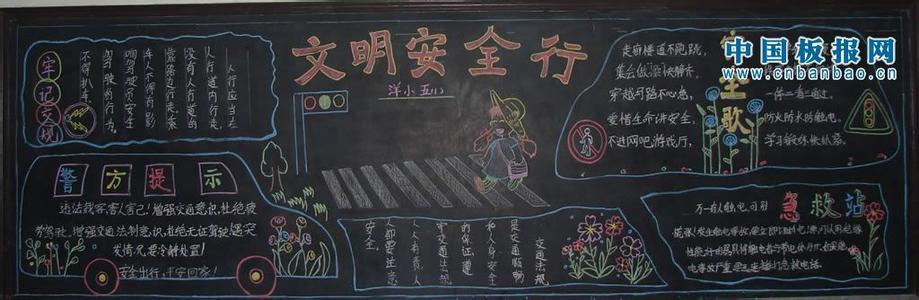 文明安全行
洋小五(2)
牢记交规
人行应当在
人行道内行走
没有人行道的
靠路边行走乘
车人不得有影
响驾驶员安全
驾驶的行为。
不得扒车
警方提示
违法载客,害人害己!增强交通意识,杜绝疲
劳驾驶,增强交通法制意识,杜绝无证驾驶遇突
发情况,要冷静处置!
安全出行,平安回家!
交通法规
是交通顺畅
和人身安全
的保证遵
守交通法规
人人有责人
人都要注意
安全
安全歌
走廊楼道不跑跳,
集会做操快静齐,
穿越马路不心急,
爱惜生命讲安全,
不进网吧游戏厅,
一停二看三通过,
防火防水防触电,
中国板报网
www.cnbanbao.cn
急救站
万一有人触电,可别